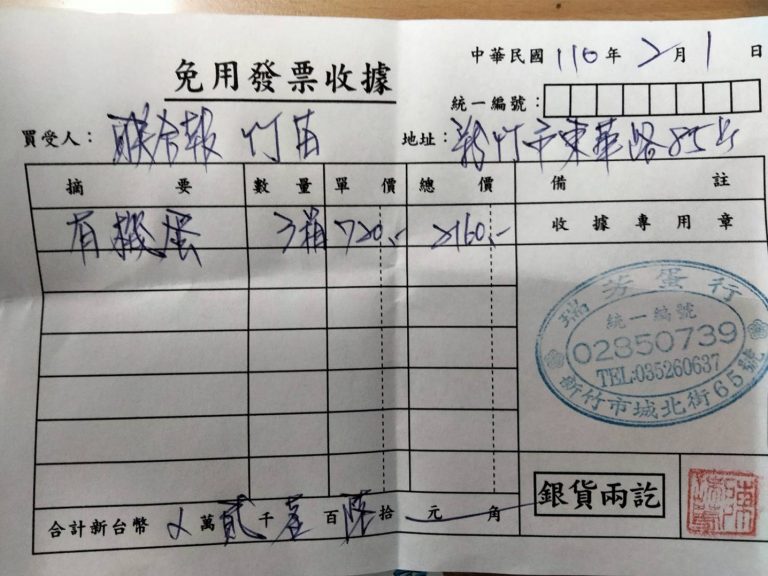 中華民國 110 年 2 月 1 日
免用發票收據
統一編號：
買受人： 聯合報 竹苗
地址： 新竹市東華路85号
摘要 數量 單價 總價 備註
有機蛋 3箱 720.- 2160.- 收據專用章
瑞芳蛋行
統一編號
02850739
TEL:035260637
新竹市城北街65號
銀貨兩訖
合計新台幣 萬 貳 千 壹 百 陸 拾 元 角